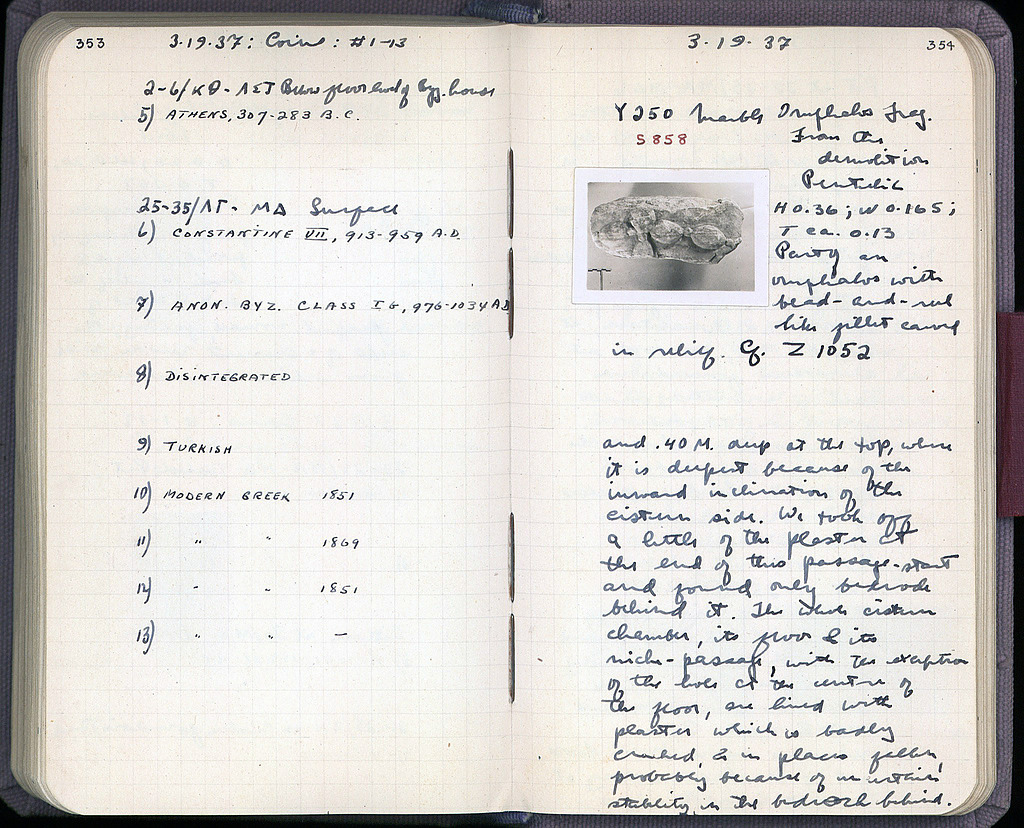 353
3·19·37: Coins: #1-13
2-6/ΚΘ-ΛΣΤ Below floor level of Byz. house
5) ATHENS, 307-283 B.C.
25-35/ΛΓ-ΜΔ Surface
6) CONSTANTINE VII, 913-959 A.D.
7) ANON. BYZ. CLASS I G, 976-1034 AD
8) DISINTEGRATED
9) TURKISH
10) MODERN GREEK 1851
11) " " 1869
12) " " 1851
13) " " —
3·19·37
354
Y250 Marble Omphalos frag.
S 858
From the
demolition
Pentelic
H 0.36; W 0.165;
T ca. 0.13
Part of an
omphalos with
bead-and-reel
like fillet carved
in relief. Cf. Z 1052
and .40 M. deep at the top, where
it is deepest because of the
inward inclination of the
cistern side. We took off
a little of the plaster at
the end of this passage-start
and found only bedrock
behind it. The whole cistern
chamber, its floor & its
niche-passage, with the exception
of the hole at the centre of
the floor, are lined with
plaster which is badly
cracked, & in places fallen,
probably because of uncertain
stability in the bedrock behind.